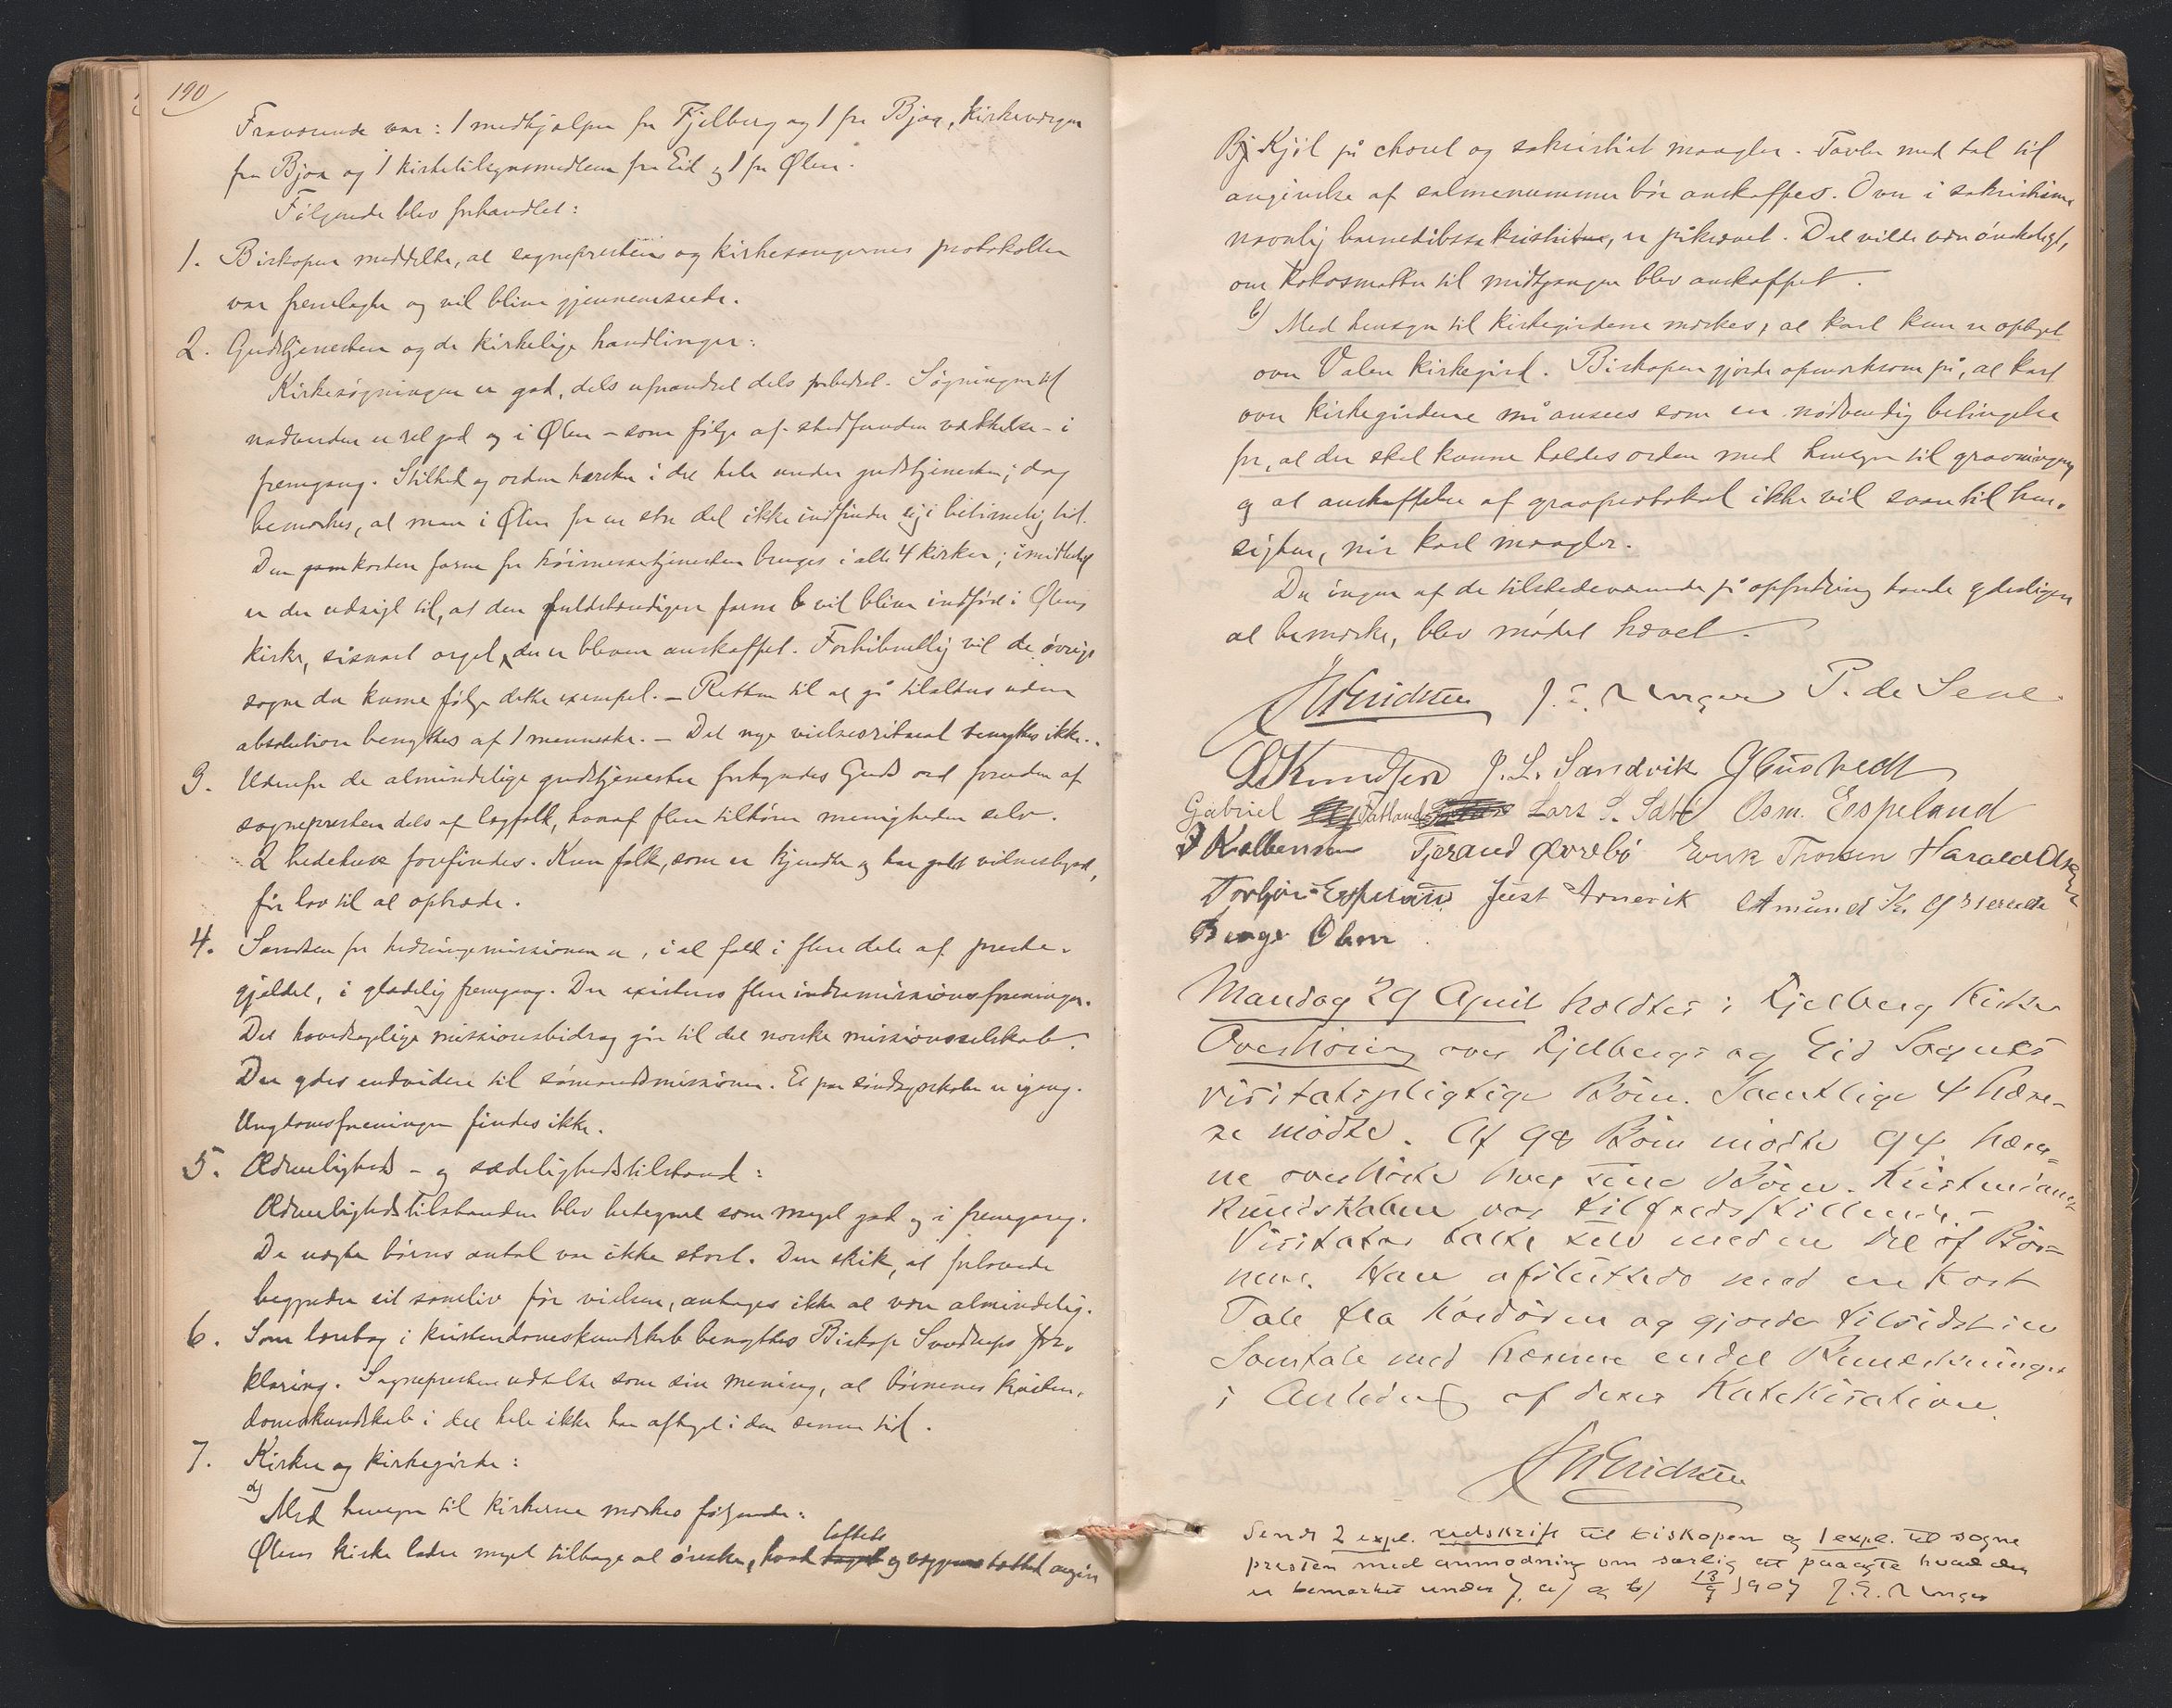 190
Fraværende var: 1 medhjælper fra Fjelberg og 1 fra Bjoa, kirkeværgen
fra Bjoa og 1 kirketilsynsmedlem fra Eid og 1 fra Ølen.
Følgende blev forhandlet:
1. Biskopen meddelte, at sogneprestens og kirkesangernes protokoller
var fremlagte og vil blive gjennemseede.
2. Gudstjenesten og de kirkelige handlinger:
Kirkesøgningen er god, dels uforandret dels forbedret. Søgningen til
nadverden er vel god og i Ølen – som følge af stedfunden vækkelse – i
fremgang. Stilhed og orden hersker i det hele under gudstjenesten; dog
bemærkes, at man i Ølen for en stor del ikke indfinder sig i betimelig tid.
Den kortere form for høimessetjenesten bruges i alle 4 kirker; imidlertid
er der udsigt til, at den fuldstændigere form vil blive indført i Ølens
kirke, såsnart orgel der er bleven anskaffet. Forhåbentlig vil de øvrige
sogne da kunne følge dette exempel. – Retten til at gå tilalters uden
absolution benyttes af 1 menneske. – Det nye vielsesritual benyttes ikke.
3. Udenfor de almindelige gudstjenester forkyndes Guds ord foruden af
sognepresten dels af lægfolk, hvoraf flere tilhører menigheden selv.
2 bedehuse forefindes. Kun folk, som er kjendte og har godt vidnesbyrd,
får lov til at optræde.
4. Sandsen for hedningemissionen er, i al fald i flere dele af preste-
gjeldet, i glædelig fremgang. Der existerer flere indremissionsforeninger.
Det hovedsagelige missionsbidrag går til det norske missionsselskab.
Der ydes endvidere til sømandsmissionen. Et par søndagsskoler er igang.
Ungdomsforeninger findes ikke.
5. Ædrueligheds- og sædelighedstilstand:
Ædruelighedstilstanden blev betegnet som meget god og i fremgang.
De uægte børns antal var ikke stort. Den skik, at forlovede
begynder sit samliv før vielsen, antages ikke at være almindelig.
6. Som lærebog i kristendomskundskab benyttes Biskop Sverdrups for-
klaring. Sognepresten udtalte som sin mening, at børnenes kristen-
domskundskab i det hele ikke har aftaget i den senere tid.
7. Kirker og kirkegårde:
a) Med hensyn til kirkerne mærkes følgende:
Ølens kirke lader meget tilbage at ønske, hvad loftets og væggenes tæthed angår
Kjøl på choret og sakristiet mangler. Tavler med tal til
angivelse af salmenummer bør anskaffes. Ovn i sakristierne
navnlig barnedåbssakristiet, er påkrævet. Det vilde være ønskeligt,
om kokosmatter til midtgangen blev anskaffet.
b) Med hensyn til kirkegårdene mærkes, at kart kun er optaget
over Valen kirkegård. Biskopen gjorde opmærksom på, at kart
over kirkegårdene må ansees som en nødvendig betingelse
for, at der skal kunne holdes orden med hensyn til gravningen,
og at anskaffelse af gravprotokol ikke vil svare til hen-
sigten, når kart mangler.
Da ingen af de tilstedeværende på opfordring havde yderligere
at bemærke, blev mødet hævet.
J. W. Eriksen J. E. Unger P. de Seve.
O. Knudsen J. L. Sandvik
Gabriel Lars S. Sæbø Osm. Espeland
Tjerand Øvrebø Erik Thorsen Harald Olsen
Torbjørn Espeland Just Arnevik Amund
Børge Olsen
Mandag 29 April holdtes i Fjelberg Kirke
Overhøring over Fjelbergs og Eid Sognes
visitatspligtige Børn. Samtlige 4 Lære-
re mødte. Af 98 Børn mødte 94. Lærer-
ne overhørte hver sine Børn. Kristendoms-
kundskaben var tilfredsstillende. –
Visitator talte selv med en Del af Bør-
nene. Han afsluttede med en kort
Tale fra Kordøren og gjorde tilsidst i en
Samtale med Lærerne endel Bemærkninger
i Anledning af deres Katekisation.
J. W. Eriksen
Sendt 2 expl. udskrift til biskopen og 1 expl. til sogne
presten med anmodning om særlig at paaagte hvad der
er bemærket under 7. a) og b) 13/9 1907 J. E. Unger